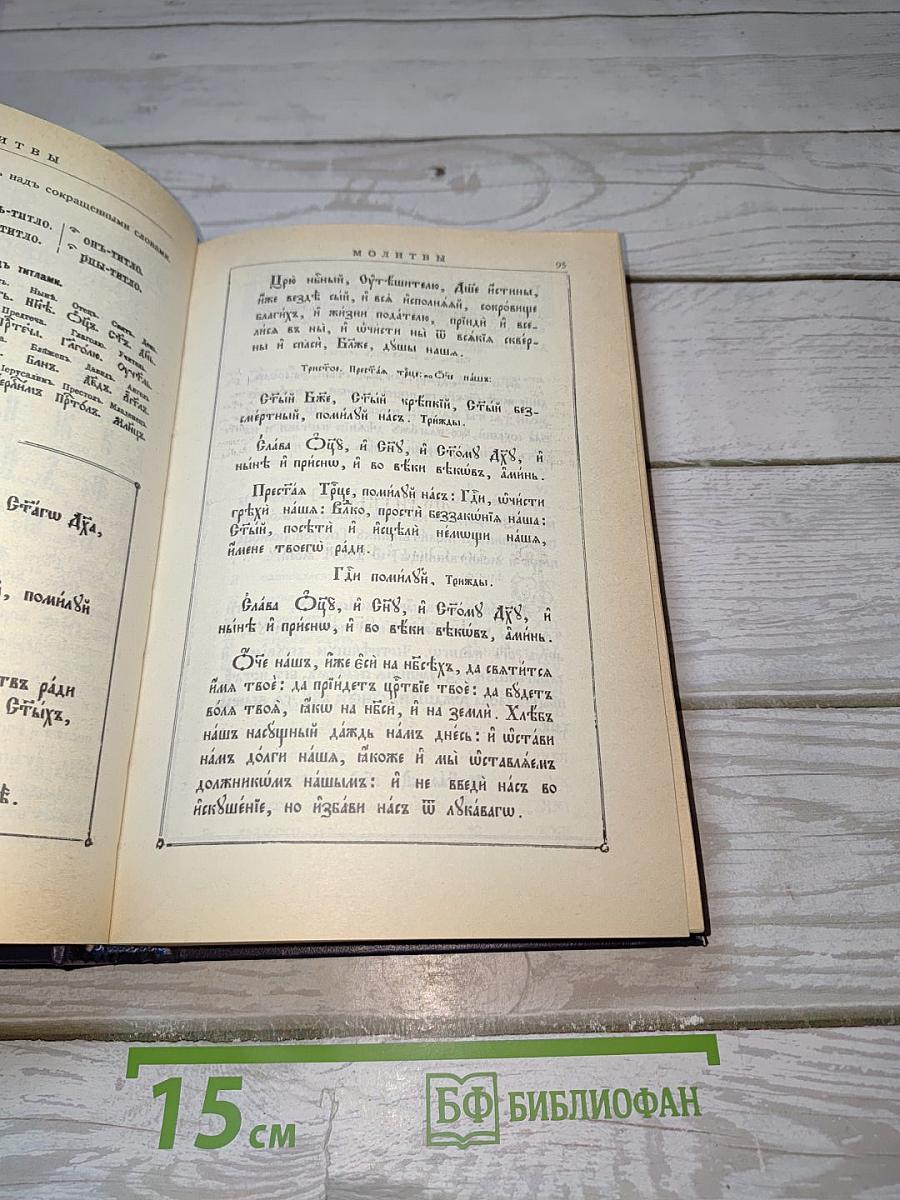 ИТВЫ
надъ сокращенными словами.
ъ-титло.
онъ-титло.
титло.
рцы-титло.
титлами.
Ст҃а́гѡ Дх҃а,
поми́лꙋй
ра́ди
Ст҃ы́хъ,
МОЛИТВЫ
95
Цр҃ю̀ нбⷭ҇ный, Оу҆тѣ́шителю, Дш҃е и҆́стины,
и҆́же вездѣ̀ сы́й, и҆ всѧ̑ и҆сполнѧ́ѧй, сокро́вище
благи́хъ, и҆ жи́зни пода́телю, прїидѝ и҆ все-
ли́сѧ въ ны̀, и҆ ѡ҆чи́сти ны̀ ѿ всѧ́кїѧ сквер-
ны и҆ спасѝ, Бл҃же, дꙋ́шы на́шѧ.
Трист҃о́е. Прест҃а́ѧ трⷪ҇це: по Ѻ҆́ч҃е на́шъ:
Ст҃ы́й Бж҃е, Ст҃ы́й крѣ́пкїй, Ст҃ы́й без-
сме́ртный, поми́лꙋй на́съ. Три́жды.
Сла́ва Ѻ҆ц҃ꙋ̀, и҆ Сн҃ꙋ, и҆ Ст҃о́мꙋ Дх҃ꙋ, и҆
ны́нѣ и҆ при́снѡ, и҆ во вѣ́ки вѣкѡ́въ, а҆ми́нь.
Прест҃а́ѧ Трⷪ҇це, поми́лꙋй на́съ: Гдⷭ҇и, ѡ҆чи́сти
грѣхѝ на́шѧ: Влⷣко, простѝ беззакѡ́нїѧ на́ша:
Ст҃ы́й, посѣтѝ и҆ и҆сцѣлѝ не́мощи на́шѧ,
и҆́мене твоегѡ̀ ра́ди.
Гдⷭ҇и поми́лꙋй, Три́жды.
Сла́ва Ѻ҆ц҃ꙋ̀, и҆ Сн҃ꙋ, и҆ Ст҃о́мꙋ Дх҃ꙋ, и҆
ны́нѣ и҆ при́снѡ, и҆ во вѣ́ки вѣкѡ́въ, а҆ми́нь.
Ѻ҆́ч҃е на́шъ, и҆́же є҆сѝ на нб҃сѣ́хъ, да свѧти́тсѧ
и҆́мѧ твоѐ: да прїи́детъ црⷭ҇твїе твоѐ: да бꙋ́детъ
во́лѧ твоѧ̀, ꙗ҆́кѡ на нб҃сѝ, и҆ на землѝ. Хлѣ́бъ
на́шъ насꙋ́щный да́ждь на́мъ дне́сь: и҆ ѡ҆ста́ви
на́мъ до́лги на́шѧ, ꙗ҆́коже и҆ мы̀ ѡ҆ставлѧ́емъ
должникѡ́мъ на́шымъ: и҆ не введѝ на́съ во
и҆скꙋше́нїе, но и҆зба́ви на́съ ѿ лꙋка́вагѡ.
15 см
БФ БИБЛИОФАН